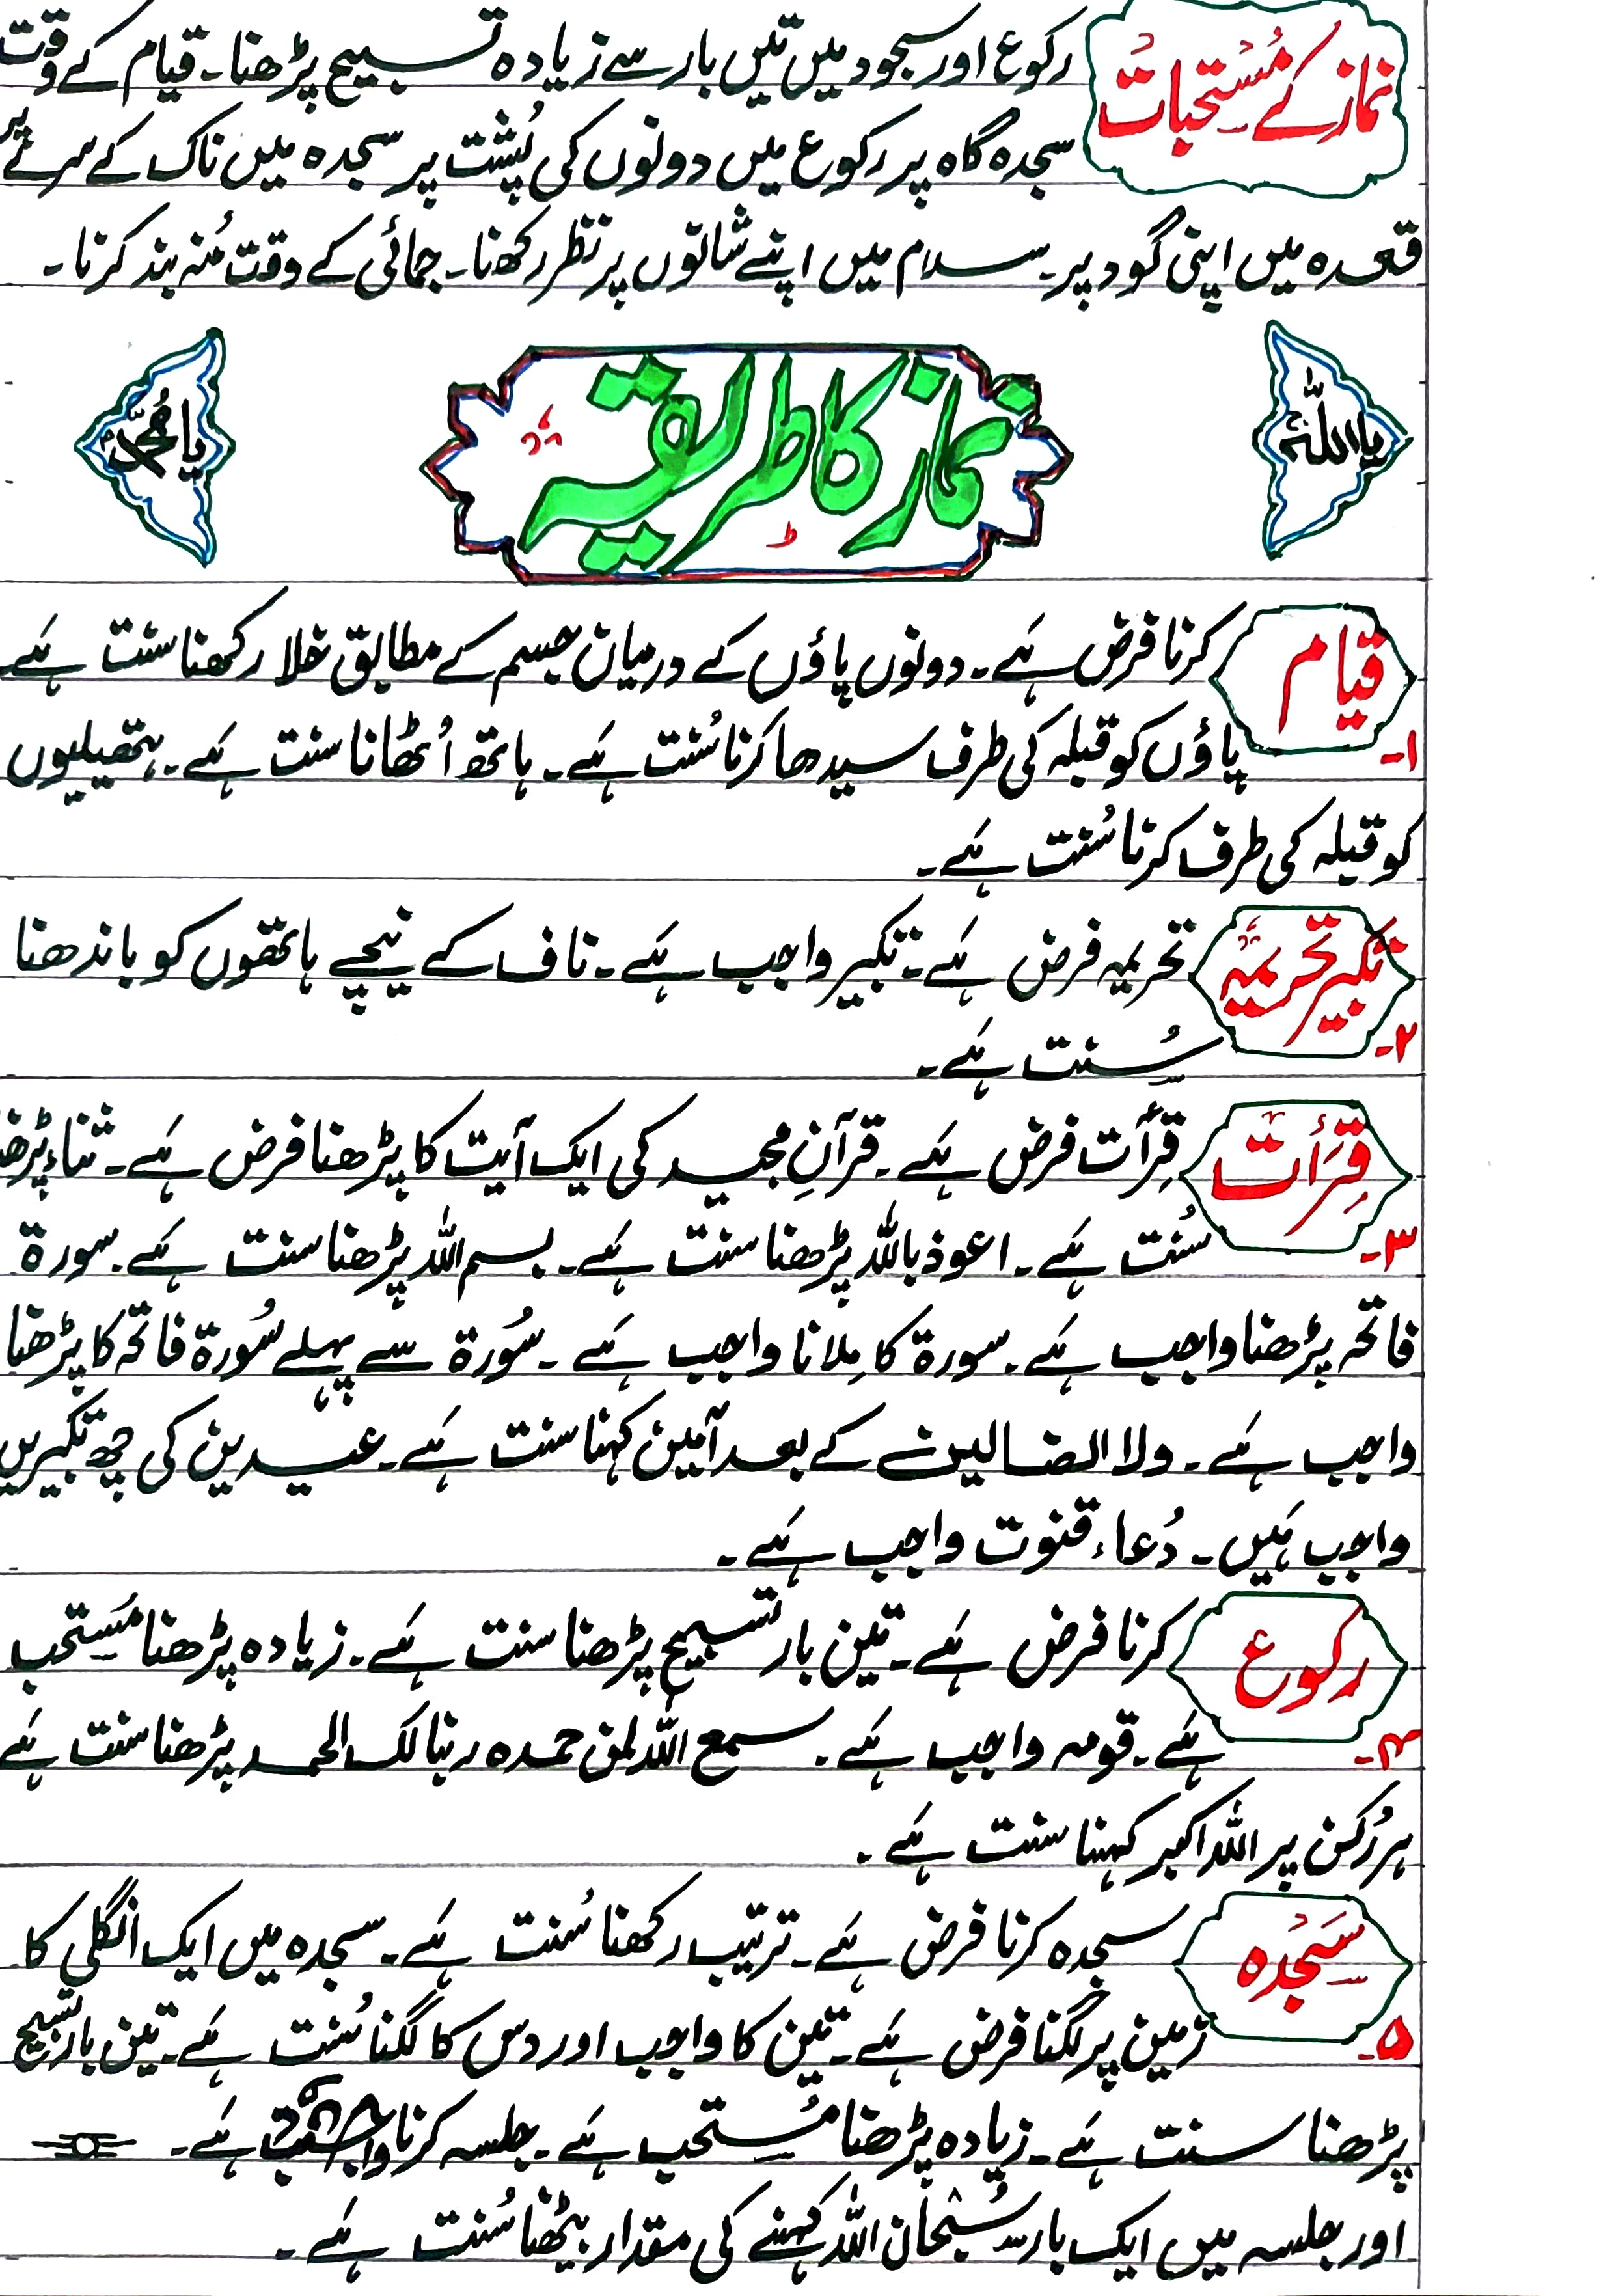 نماز کے مُسْتحبات
رکوع اور سجود میں تین بار سے زیادہ تسبیح پڑھنا۔ قیام کے وقت
سجدہ گاہ پر رکوع میں دونوں کی پُشت پر سجدہ میں ناک کے سرے پر
قعدہ میں اپنی گود پر۔ سلام میں اپنے شانوں پر نظر رکھنا۔ جمائی کے وقت مُنہ بند کرنا۔
یا اللہ
نماز کا طریقہ
یا محمّد
قیام
۱۔
کرنا فرض ہے۔ دونوں پاؤں کے درمیان جسم کے مطابق خلا رکھنا سنت ہے
پاؤں کو قبلہ کی طرف سیدھا کرنا سُنت ہے۔ ہاتھ اُٹھانا سنت ہے۔ ہتھیلیوں
کو قبلہ کی طرف کرنا سُنت ہے۔
تکبیر تحریمہ
۲۔
تحریمہ فرض ہے۔ تکبیر واجب ہے۔ ناف کے نیچے ہاتھوں کو باندھنا
سُنت ہے۔
قِرَأت
۳۔
قِرأت فرض ہے۔ قرآنِ مجید کی ایک آیت کا پڑھنا فرض ہے۔ ثناء پڑھنا
سُنت ہے۔ اعوذ باللہ پڑھنا سنت ہے۔ بسم اللہ پڑھنا سنت ہے۔ سورۃ
فاتحہ پڑھنا واجب ہے۔ سورۃ کا مِلانا واجب ہے۔ سُورۃ سے پہلے سُورۃ فاتحہ کا پڑھنا
واجب ہے۔ ولا الضالین کے بعد آمین کہنا سنت ہے۔ عیدین کی چھ تکبیریں
واجب ہَیں۔ دُعاء قنوت واجب ہے۔
رکوع
۴۔
کرنا فرض ہے۔ تین بار تسبیح پڑھنا سنت ہے۔ زیادہ پڑھنا مُستحب
ہے۔ قومہ واجب ہے۔ سمع اللہ لمن حمدہ ربنا لک الحمد پڑھنا سنت ہے
ہر رُکن پر اللہ اکبر کہنا سنت ہے۔
سَجْدہ
۵۔
سجدہ کرنا فرض ہے۔ ترتیب رکھنا سُنت ہے۔ سجدہ میں ایک انگلی کا
زمین پر لگنا فرض ہے۔ تین کا واجب اور دس کا لگنا سُنت ہے۔ تین بار تسبیح
پڑھنا سنت ہے۔ زیادہ پڑھنا مُستحب ہے۔ جلسہ کرنا واجب ہے۔
اور جلسہ میں ایک بار سُبْحَان اللہ کہنے کی مقدار بیٹھنا سُنت ہے۔